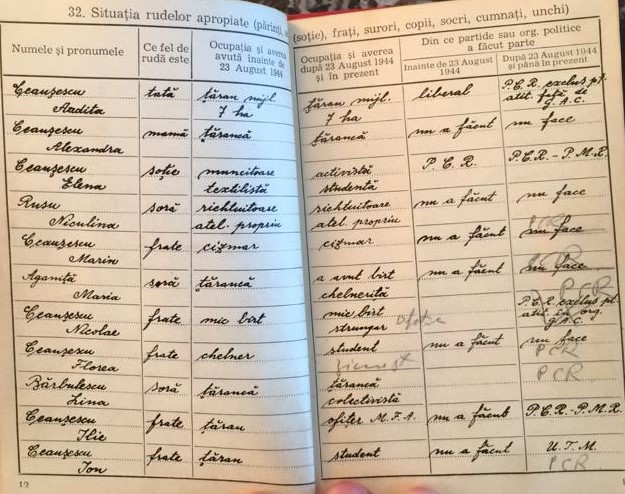 32. Situația rudelor apropiate (părinți, (soție), frați, surori, copii, socri, cumnați, unchi)
Numele și pronumele
Ce fel de rudă este
Ocupația și averea avută înainte de 23 August 1944
Ocupația și averea după 23 August 1944 și în prezent
Din ce partide sau org. politice a făcut parte
Inainte de 23 August 1944
După 23 August 1944 și până în prezent
Ceaușescu tată țăran mijl. țăran mijl. liberal P.C.R. exclus pt.
Anduța 7 ha 7 ha atit. față de G.A.C.
Ceaușescu mamă țărancă țărancă nu a făcut nu face
Alexandra
Ceaușescu soție muncitoare activistă P.C.R. P.C.R.-P.M.R.
Elena textilistă studentă
Rusu soră richtuitoare richtuitoare nu a făcut nu face
Niculina atel. propriu atel. propriu
Ceaușescu frate cizmar cizmar nu a făcut nu face
Marin
Agoniță soră țărancă a avut birt nu a făcut nu face
Maria chelneriță PCR
Ceaușescu frate mic birt mic birt P.C.R. exclus pt.
Nicolae strungar atit. în org. G.A.C.
Ceaușescu frate chelner student nu a făcut nu face
Florea ziarist PCR
Bărbulescu soră țărancă țărancă PCR
Lina colectivistă
Ceaușescu frate țăran ofițer M.F.A. nu a făcut P.C.R.-P.M.R.
Ilie
Ceaușescu frate țăran student nu a făcut U.T.M.
Ion PCR
12